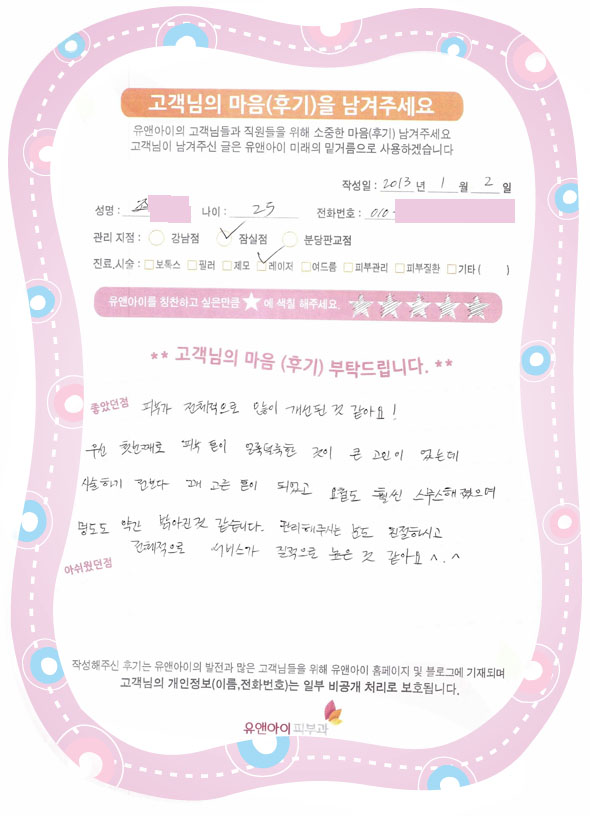 고객님의 마음(후기)을 남겨주세요
유앤아이의 고객님들과 직원들을 위해 소중한 마음(후기) 남겨주세요
고객님이 남겨주신 글은 유앤아이 미래의 밑거름으로 사용하겠습니다
작성일 : 2013 년 1 월 2 일
성명 : 나이 : 25 전화번호 : 010-
관리 지점 : 강남점 잠실점 분당판교점
진료,시술 : 보톡스 필러 제모 레이저 여드름 피부관리 피부질환 기타 ( )
유앤아이를 칭찬하고 싶은만큼 ★ 에 색칠 해주세요.
** 고객님의 마음 (후기) 부탁드립니다. **
좋았던점 피부가 전체적으로 많이 개선된 것 같아요!
우선 첫번째로 피부 톤이 얼룩덜룩한 것이 큰 고민이 었는데
시술하기 전보다 고른 톤이 되었고 요철도 훨씬 스무스해졌으며
명도도 약간 밝아진것 같습니다. 관리해주시는 분도 친절하시고
전체적으로 서비스가 질적으로 높은 것 같아요 ^.^
아쉬웠던점
작성해주신 후기는 유앤아이의 발전과 많은 고객님들을 위해 유앤아이 홈페이지 및 블로그에 기재되며
고객님의 개인정보(이름,전화번호)는 일부 비공개 처리로 보호됩니다.
유앤아이피부과